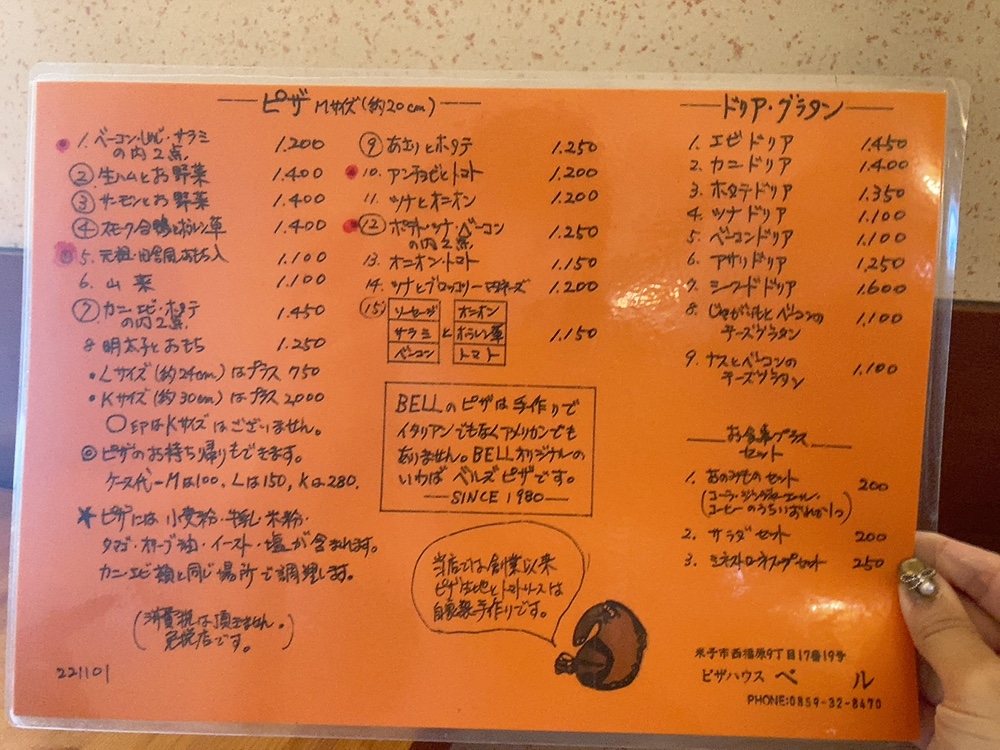 ピザ Mサイズ(約20cm)
1. ベーコン・しめじ・サラミ
の内2点 1.200
② 生ハムとお野菜 1.400
③ サーモンとお野菜 1.400
④ スモーク合鴨とホーレン草 1.400
5. 元祖・田舎風おもち入 1.100
6. 山菜 1.100
⑦ カニ・エビ・ホタテ
の内2点 1.450
8 明太子とおもち 1.250
•Lサイズ(約24cm)はプラス 750
•Kサイズ(約30cm)はプラス 2,000
○印はKサイズはございません。
◎ピザのお持ち帰りもできます。
ケース代ーMは100、Lは150、Kは280.
★ピザには 小麦粉・米粉・
タマゴ・オリーブ油・イースト・塩が含まれます。
カニ・エビ類と同じ場所で調理します。
(消費税は頂きません。
免税店です。)
221101
⑨ あさりとホタテ 1.250
10. アンチョビとトマト 1.200
11. ツナとオニオン 1.200
⑫ ポテト・ツナ・ベーコン
の内2点 1.250
13. オニオン・トマト 1.150
14. ツナとブロッコリー マヨネーズ 1.200
⑮ ソーセージ オニオン
サラミ と ホーレン草 1.150
ベーコン トマト
BELLのピザは手作りで
イタリアンでもなくアメリカンでも
ありません。BELLオリジナルの
いわば ベルズピザです。
SINCE 1980
当店では創業以来
ピザ生地とトマトソースは
自家製手作りです。
ドリア・グラタン
1. エビドリア 1.450
2. カニドリア 1.400
3. ホタテドリア 1.350
4. ツナドリア 1.100
5. ベーコンドリア 1.100
6. アサリドリア 1.250
7. シーフードドリア 1.600
8. じゃがいもとベーコンの
チーズグラタン 1.100
9. ナスとベーコンの
チーズグラタン 1.100
お食事プラス
セット
1. おのみものセット 200
(コーラ・ジンジャーエール・
コーヒーのうちいずれか1つ)
2. サラダセット 200
3. ミネストローネスープセット 250
米子市西福原9丁目17番19号
ピザハウス ベル
PHONE:0859-32-8470